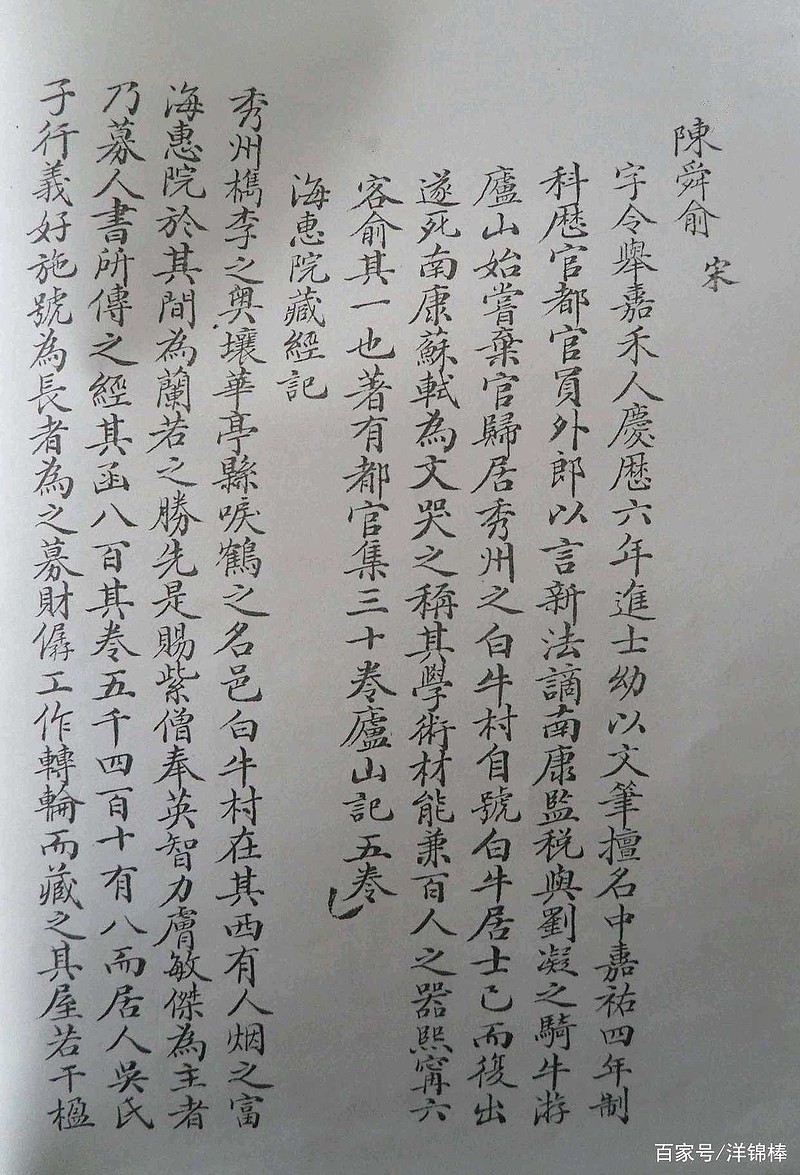 陳舜俞 宋
字令舉嘉禾人慶歷六年進士幼以文筆擅名中嘉祐四年制
科歷官都官員外郎以言新法謫南康監稅與劉凝之騎牛游
廬山始嘗棄官歸居秀州之白牛村自號白牛居士已而復出
遂死南康蘇軾為文哭之稱其學術材能兼百人之器熙甯六
客俞其一也著有都官集三十卷廬山記五卷
海惠院藏經記
秀州檇李之奧壤華亭縣唳鶴之名邑白牛村在其西有人烟之富
海惠院於其間為蘭若之勝先是賜紫僧奉英智力膚敏傑為主者
乃募人書所傳之經其函八百其卷五千四百十有八而居人吳氏
子行義好施號為長者為之募財僝工作轉輪而藏之其屋若干楹
百家号/洋锦棒